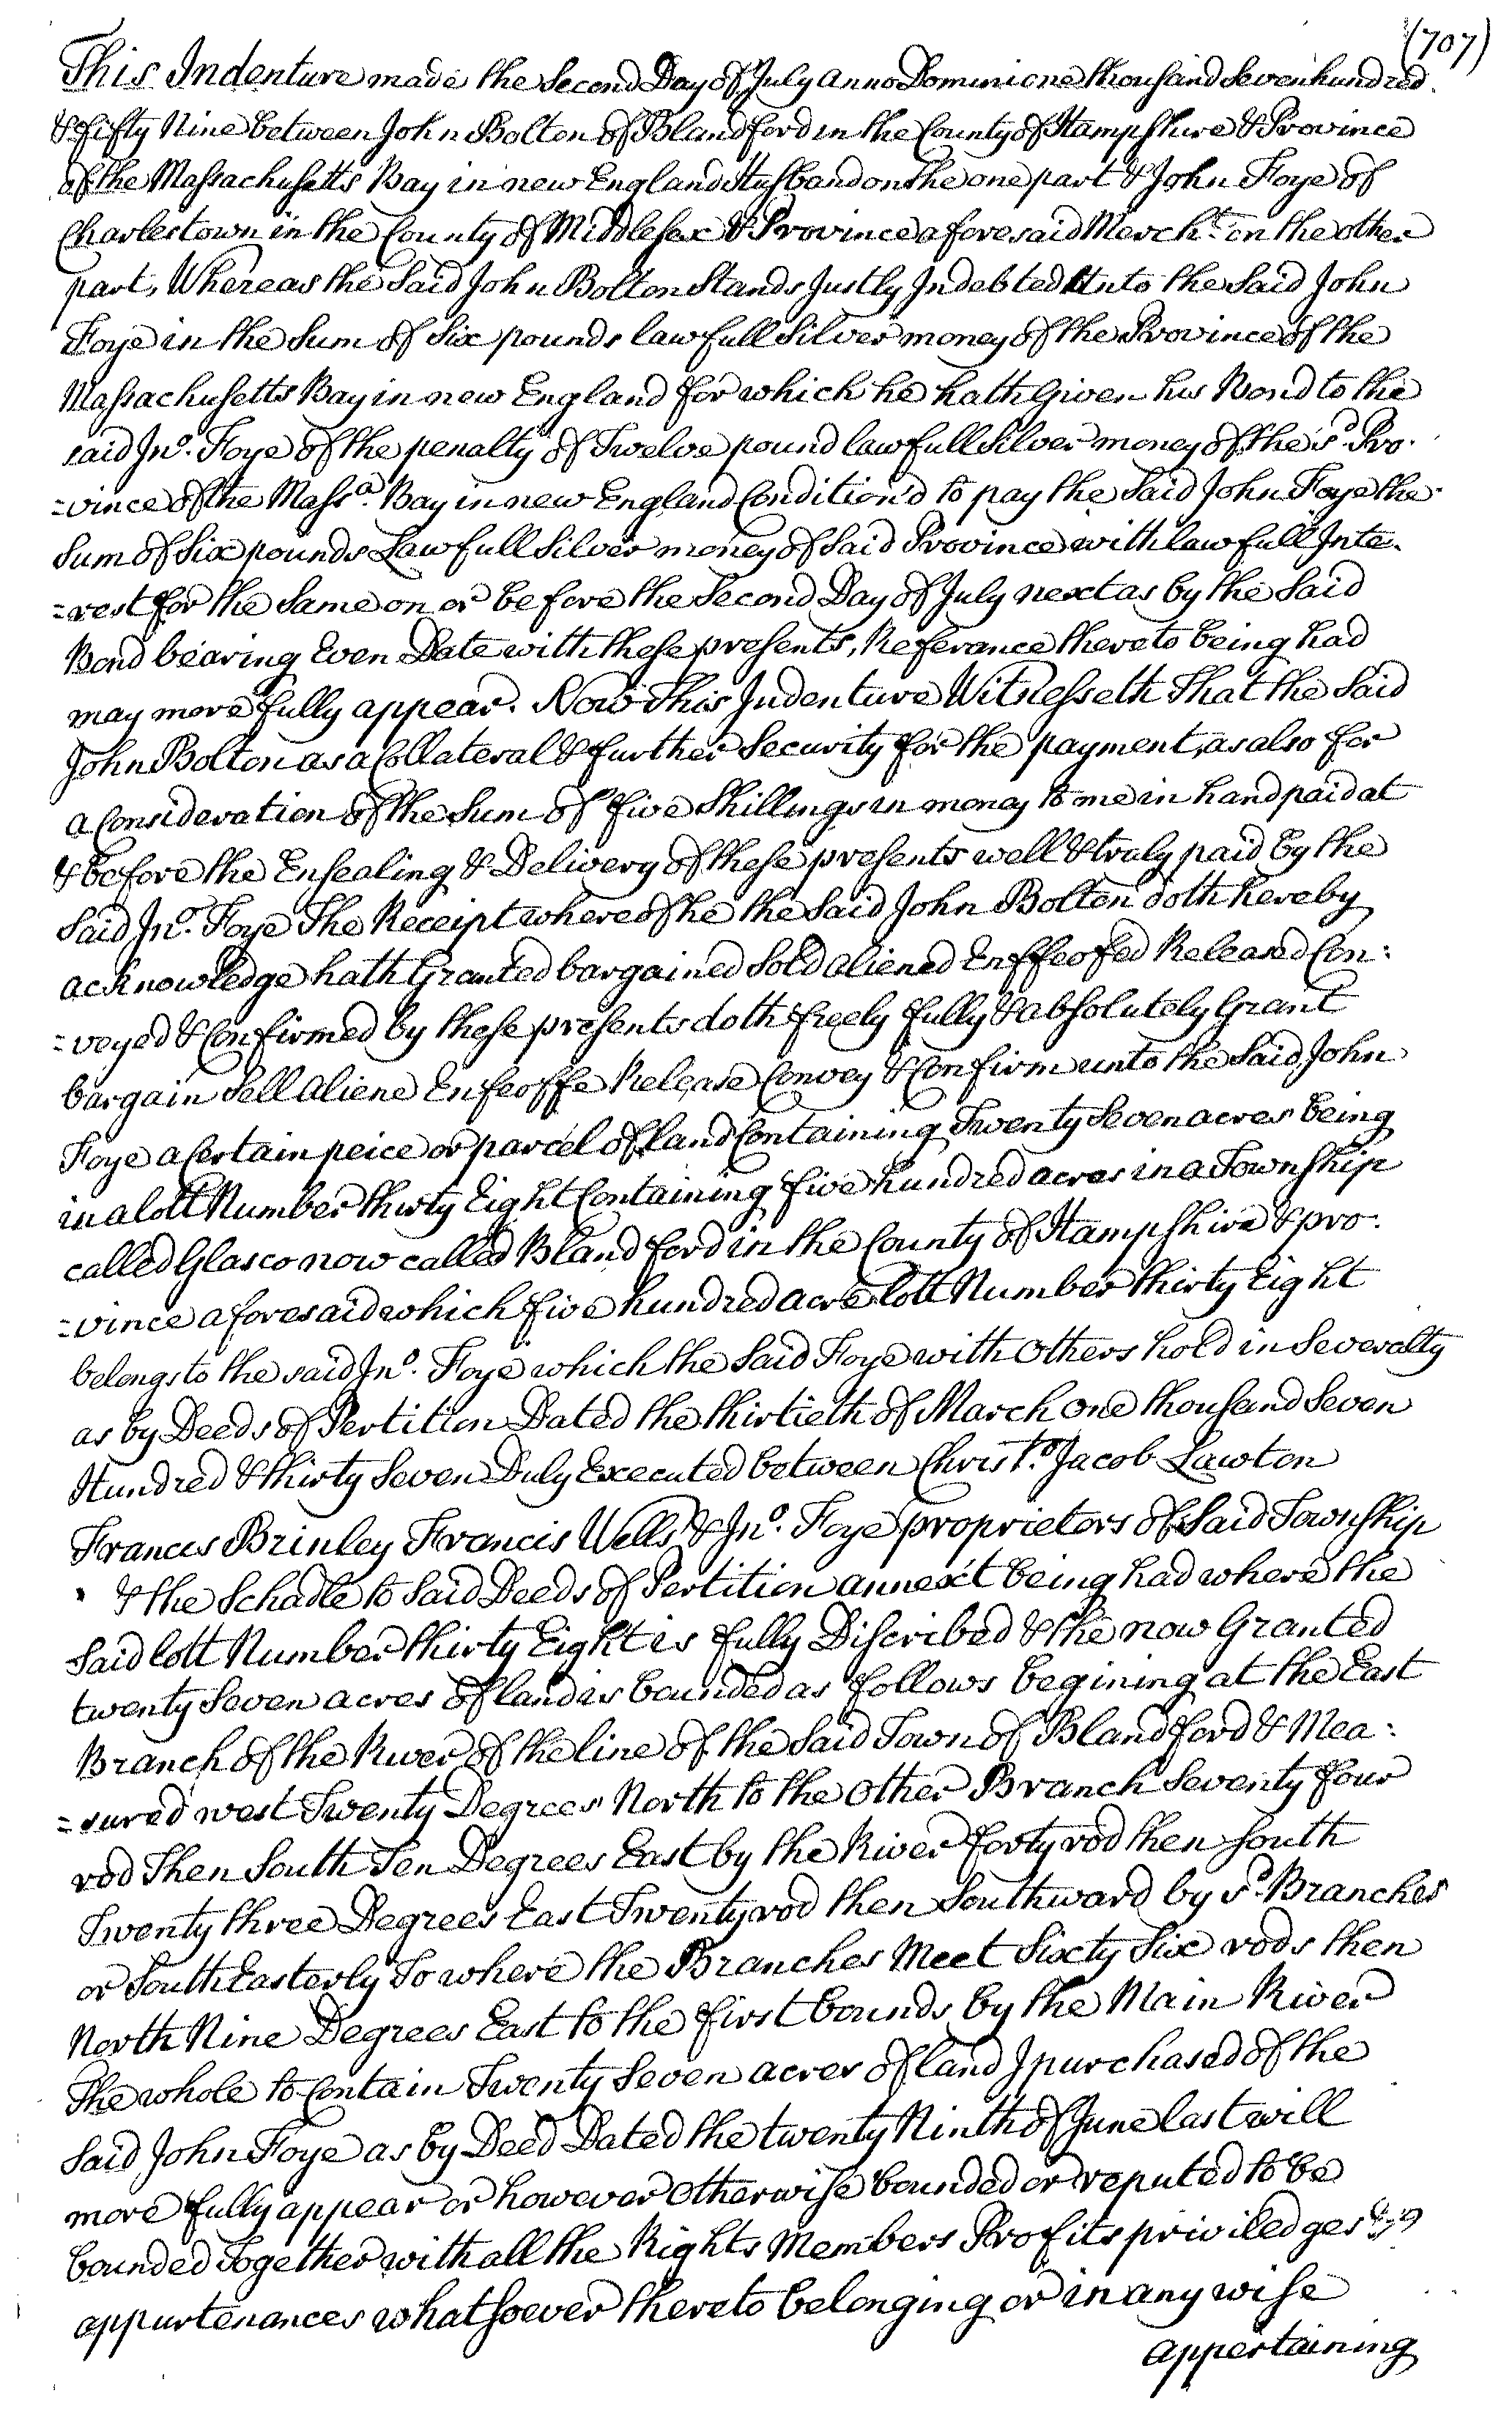 (707)
This Indenture made the Second Day of July Anno Domini one thousand Seven hundred
& fifty Nine between John Bolton of Blandford in the County of Hampshire & Province
of the Massachusetts Bay in new England Husband on the one part & John Foye of
Charlestown in the County of Middlesex & Province aforesaid Merch.t on the other
part, Whereas the Said John Bolton Stands Justly Indebted Unto the Said John
Foye in the Sum of Six pounds lawfull Silver money of the Province of the
Massachusetts Bay in new England for which he hath Given his Bond to the
said Jn.o Foye of the penalty of Twelve pound lawfull Silver money of the s.d Pro-
=vince of the Mass.a Bay in new England Condition'd to pay the Said John Foye the
Sum of Six pounds Lawfull Silver money of Said Province with lawfull Inte-
=rest for the Same on or before the Second Day of July next as by the Said
Bond bearing Even Date with these presents, Referance thereto being had
may more fully appear. Now This Indenture Witnesseth That the Said
John Bolton as a Collateral & further Security for the payment, as also for
a Consideration of the Sum of five Shillings in money to me in hand paid at
& before the Ensealing & Delivery of these presents well & truly paid by the
Said Jn.o Foye The Receipt whereof he the Said John Bolton doth hereby
acknowledge hath Granted bargained Sold aliened Enffeofed Released Con:
=veyed & Confirmed by these presents doth freely fully & absolutely Grant
bargain Sell aliene Enfeoffe Release Convey & Confirm unto the Said John
Foye a Certain peice or parcel of land Containing Twenty Seven acres being
in a lott Number thirty Eight Containing five hundred acres in a Township
called Glasco now called Blandford in the County of Hampshire & pro-
=vince aforesaid which five hundred acre lott Number thirty Eight
belongs to the said Jn.o Foye which the Said Foye with Others hold in Severalty
as by Deeds of Pertition Dated the thirtieth of March One thousand Seven
Hundred & thirty Seven Duly Executed between Christ.o Jacob Lawton
Francis Brinley Francis Wells & Jn.o Foye proprietors of Said Township
& the Schadle to Said Deeds of Pertition annex't being had where the
Said lott Number thirty Eight is fully Discribed & the now Granted
twenty Seven acres of land is bounded as follows begining at the East
Branch of the River of the line of the Said Town of Blandford & Mea:
=sured west Twenty Degrees North to the Other Branch Seventy four
rod Then South Ten Degrees East by the River forty rod then South
Twenty three Degrees East Twenty rod then Southward by s.d Branches
or South Easterly to where the Branches Meet Sixty Six rods then
North Nine Degrees East to the first bounds by the Main River
The whole to Contain Twenty Seven acres of land I purchased of the
Said John Foye as by Deed Dated the twenty Ninth of June last will
more fully appear or however Otherwise bounded or reputed to be
bounded Together with all the Rights Members Profits priviledges &
appurtenances whatsoever thereto belonging or in any wise
appertaining